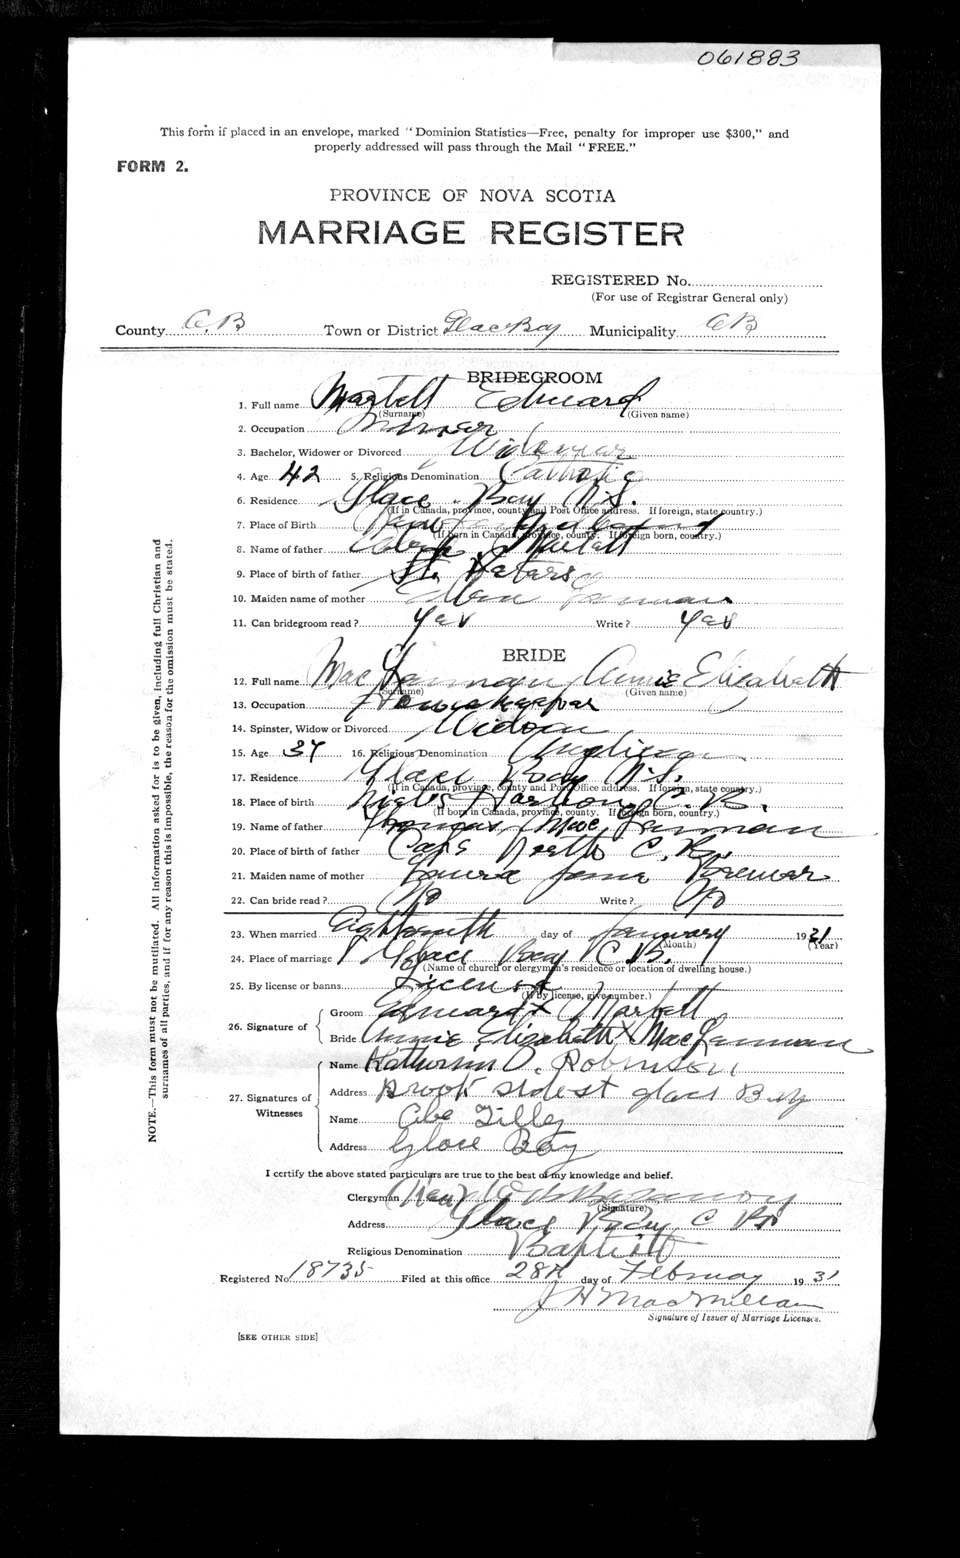 061883
This form if placed in an envelope, marked "Dominion Statistics—Free, penalty for improper use $300," and
properly addressed will pass through the Mail "FREE."
FORM 2.
PROVINCE OF NOVA SCOTIA
MARRIAGE REGISTER
REGISTERED No.
(For use of Registrar General only)
County C.B Town or District Glace Bay Municipality C B
BRIDEGROOM
1. Full name Martell Edward
(Surname) (Given name)
2. Occupation
3. Bachelor, Widower or Divorced Widower
4. Age 42 5. Religious Denomination Catholic
6. Residence Glace Bay N.S.
(If in Canada, province, county and Post Office address. If foreign, state country.)
7. Place of Birth
(If born in Canada, province, county. If foreign born, country.)
8. Name of father
9. Place of birth of father St. Peters
10. Maiden name of mother
11. Can bridegroom read? Yes Write? Yes
BRIDE
12. Full name Annie Elizabeth
(Surname) (Given name)
13. Occupation Housekeeper
14. Spinster, Widow or Divorced Widow
15. Age 37 16. Religious Denomination Anglican
17. Residence Glace Bay N.S.
(If in Canada, province, county and Post Office address. If foreign, state country.)
18. Place of birth C.B.
(If born in Canada, province, county. If foreign born, country.)
19. Name of father Thomas
20. Place of birth of father Cape North C.B.
21. Maiden name of mother Laura Jane
22. Can bride read? No Write? No
23. When married day of January 1931
(Month) (Year)
24. Place of marriage Glace Bay C.B.
(Name of church or clergyman's residence or location of dwelling house.)
25. By license or banns License
(If by license, give number.)
26. Signature of
Groom Edward X Martell
Bride Annie Elizabeth X
27. Signatures of Witnesses
Name D. Robinson
Address Brook side st glace Bay
Name Abe Tilley
Address Glace Bay
I certify the above stated particulars are true to the best of my knowledge and belief.
Clergyman
(Signature)
Address Glace Bay, C B
Religious Denomination Baptist
Registered No. 18735 Filed at this office 28th day of February 1931
J H MacMillan
Signature of Issuer of Marriage Licenses.
[SEE OTHER SIDE]
NOTE.—This form must not be mutilated. All information asked for is to be given, including full Christian and
surnames of all parties, and if for any reason this is impossible, the reason for the omission must be stated.